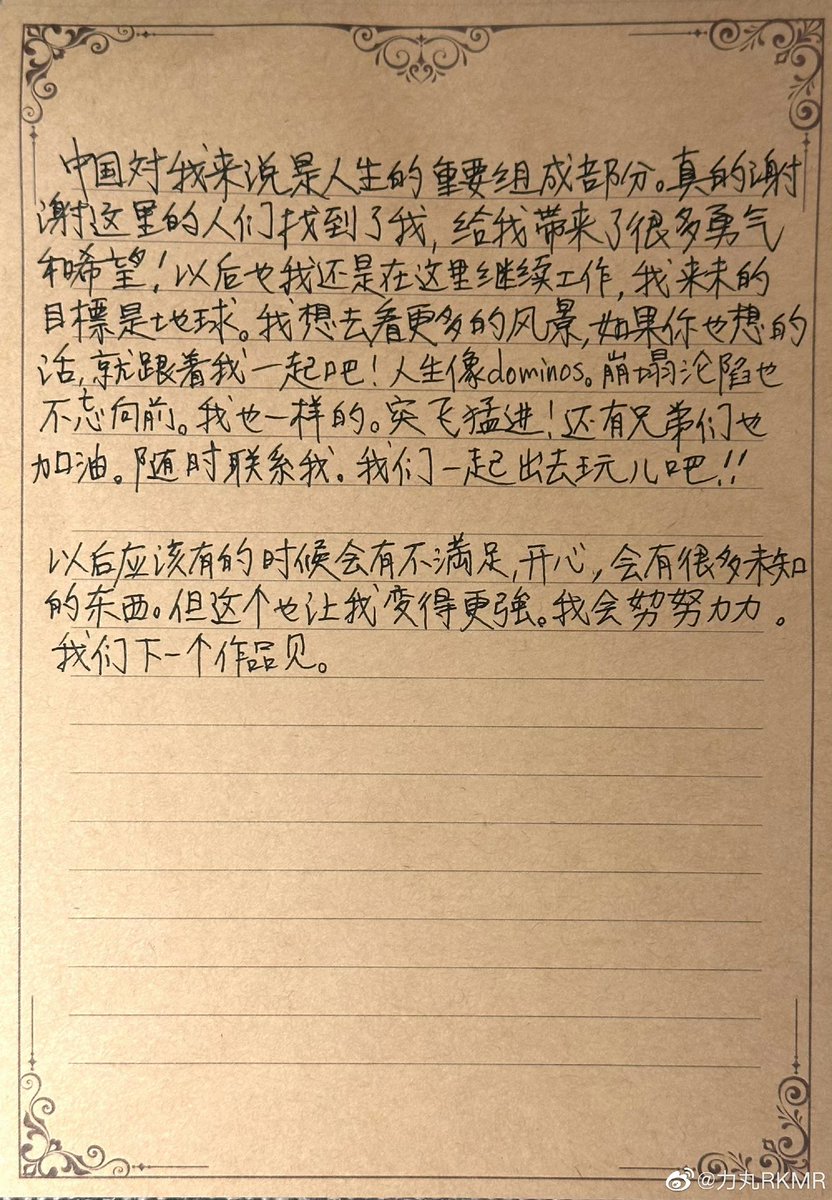 中国对我来说是人生的重要组成部分。真的谢
谢这里的人们找到了我,给我带来了很多勇气
和希望!以后也我还是在这里继续工作,我来未的
目標是地球。我想去看更多的风景,如果你也想的
话,就跟着我一起吧!人生像dominos。崩塌沦陷也
不忘向前。我也一样的。突飞猛进!还有兄弟们也
加油。随时联系我。我们一起出去玩儿吧!!
以后应该有的时候会有不满足,开心,会有很多未知
的东西。但这个也让我变得更强。我会努努力力。
我们下一个作品见。
@力丸RKMR